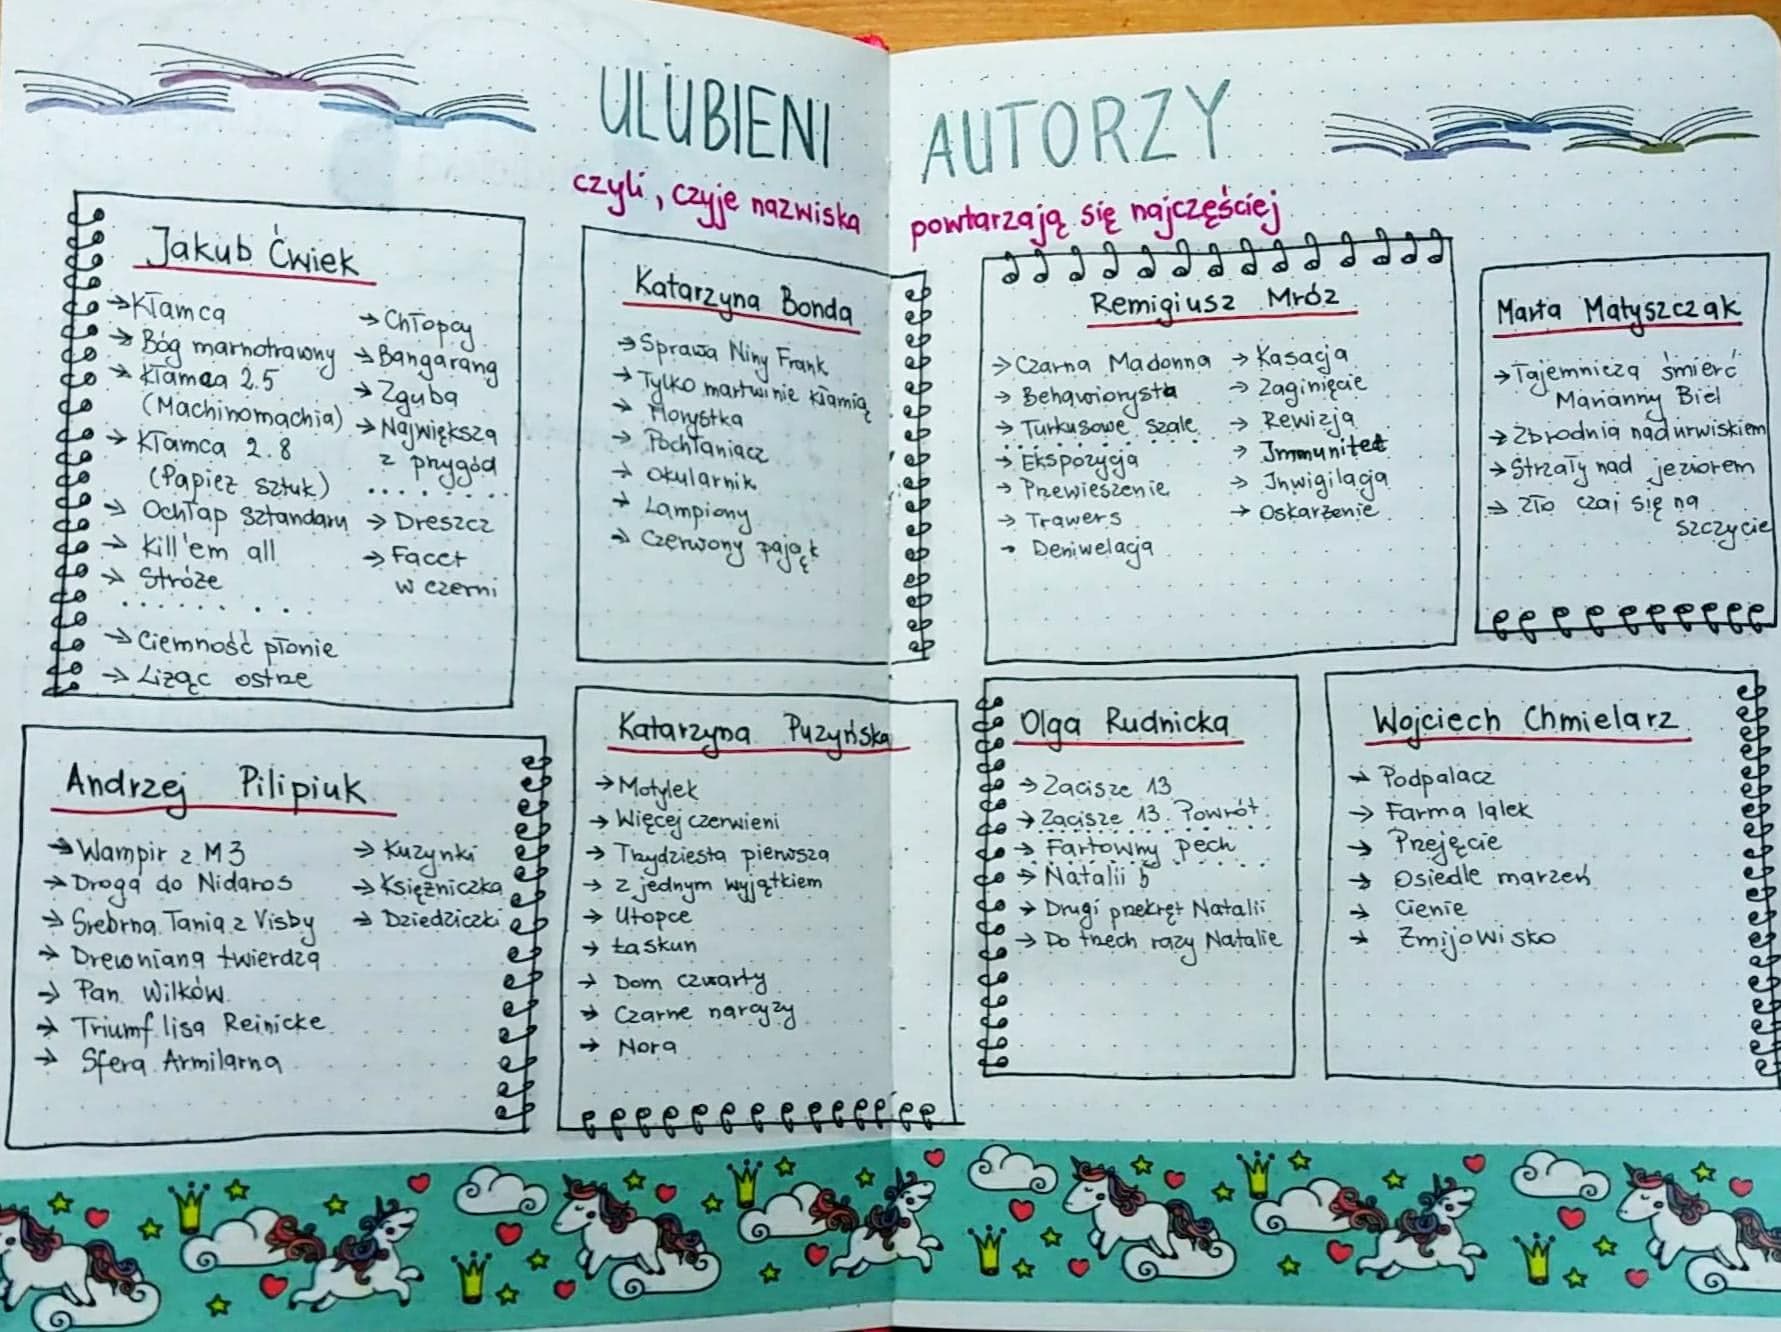 ULUBIENI AUTORZY
czyli, czyje nazwiska powtarzają się najczęściej
Jakub Ćwiek
→ Kłamca
→ Bóg marnotrawny
→ Kłamca 2.5
(Machinomachia)
→ Kłamca 2.8
(Papież sztuk)
→ Ochłap sztandaru
→ Kill'em all
→ Stróże
→ Ciemność płonie
→ Liżąc ostrze
→ Chłopcy
→ Bangarang
→ Zguba
→ Największa
z przygód
→ Dreszcz
→ Facet
w czerni
Katarzyna Bonda
→ Sprawa Niny Frank
→ Tylko martwi nie kłamią
→ Florystka
→ Pochłaniacz
→ Okularnik
→ Lampiony
→ Czerwony pająk
Remigiusz Mróz
→ Czarna Madonna
→ Behawiorysta
→ Turkusowe szale
→ Ekspozycja
→ Przewieszenie
→ Trawers
→ Deniwelacja
→ Kasacja
→ Zaginięcie
→ Rewizja
→ Immunitet
→ Inwigilacja
→ Oskarżenie
Marta Matyszczak
→ Tajemnicza śmierć
Marianny Biel
→ Zbrodnia nad urwiskiem
→ Strzały nad jeziorem
→ Zło czai się na
szczycie
Andrzej Pilipiuk
→ Wampir z M3
→ Droga do Nidaros
→ Srebrna Łania z Visby
→ Drewniana twierdza
→ Pan Wilków
→ Triumf lisa Reinicke
→ Sfera Armilarna
→ Kuzynki
→ Księżniczka
→ Dziedziczki
Katarzyna Puzyńska
→ Motylek
→ Więcej czerwieni
→ Trzydziesta pierwsza
→ Z jednym wyjątkiem
→ Utopce
→ Łaskun
→ Dom czwarty
→ Czarne narcyzy
→ Nora
Olga Rudnicka
→ Zacisze 13
→ Zacisze 13. Powrót
→ Fartowny pech
→ Natalii 5
→ Drugi przekręt Natalii
→ Do trzech razy Natalie
Wojciech Chmielarz
→ Podpalacz
→ Farma lalek
→ Przejęcie
→ Osiedle marzeń
→ Cienie
→ Żmijowisko